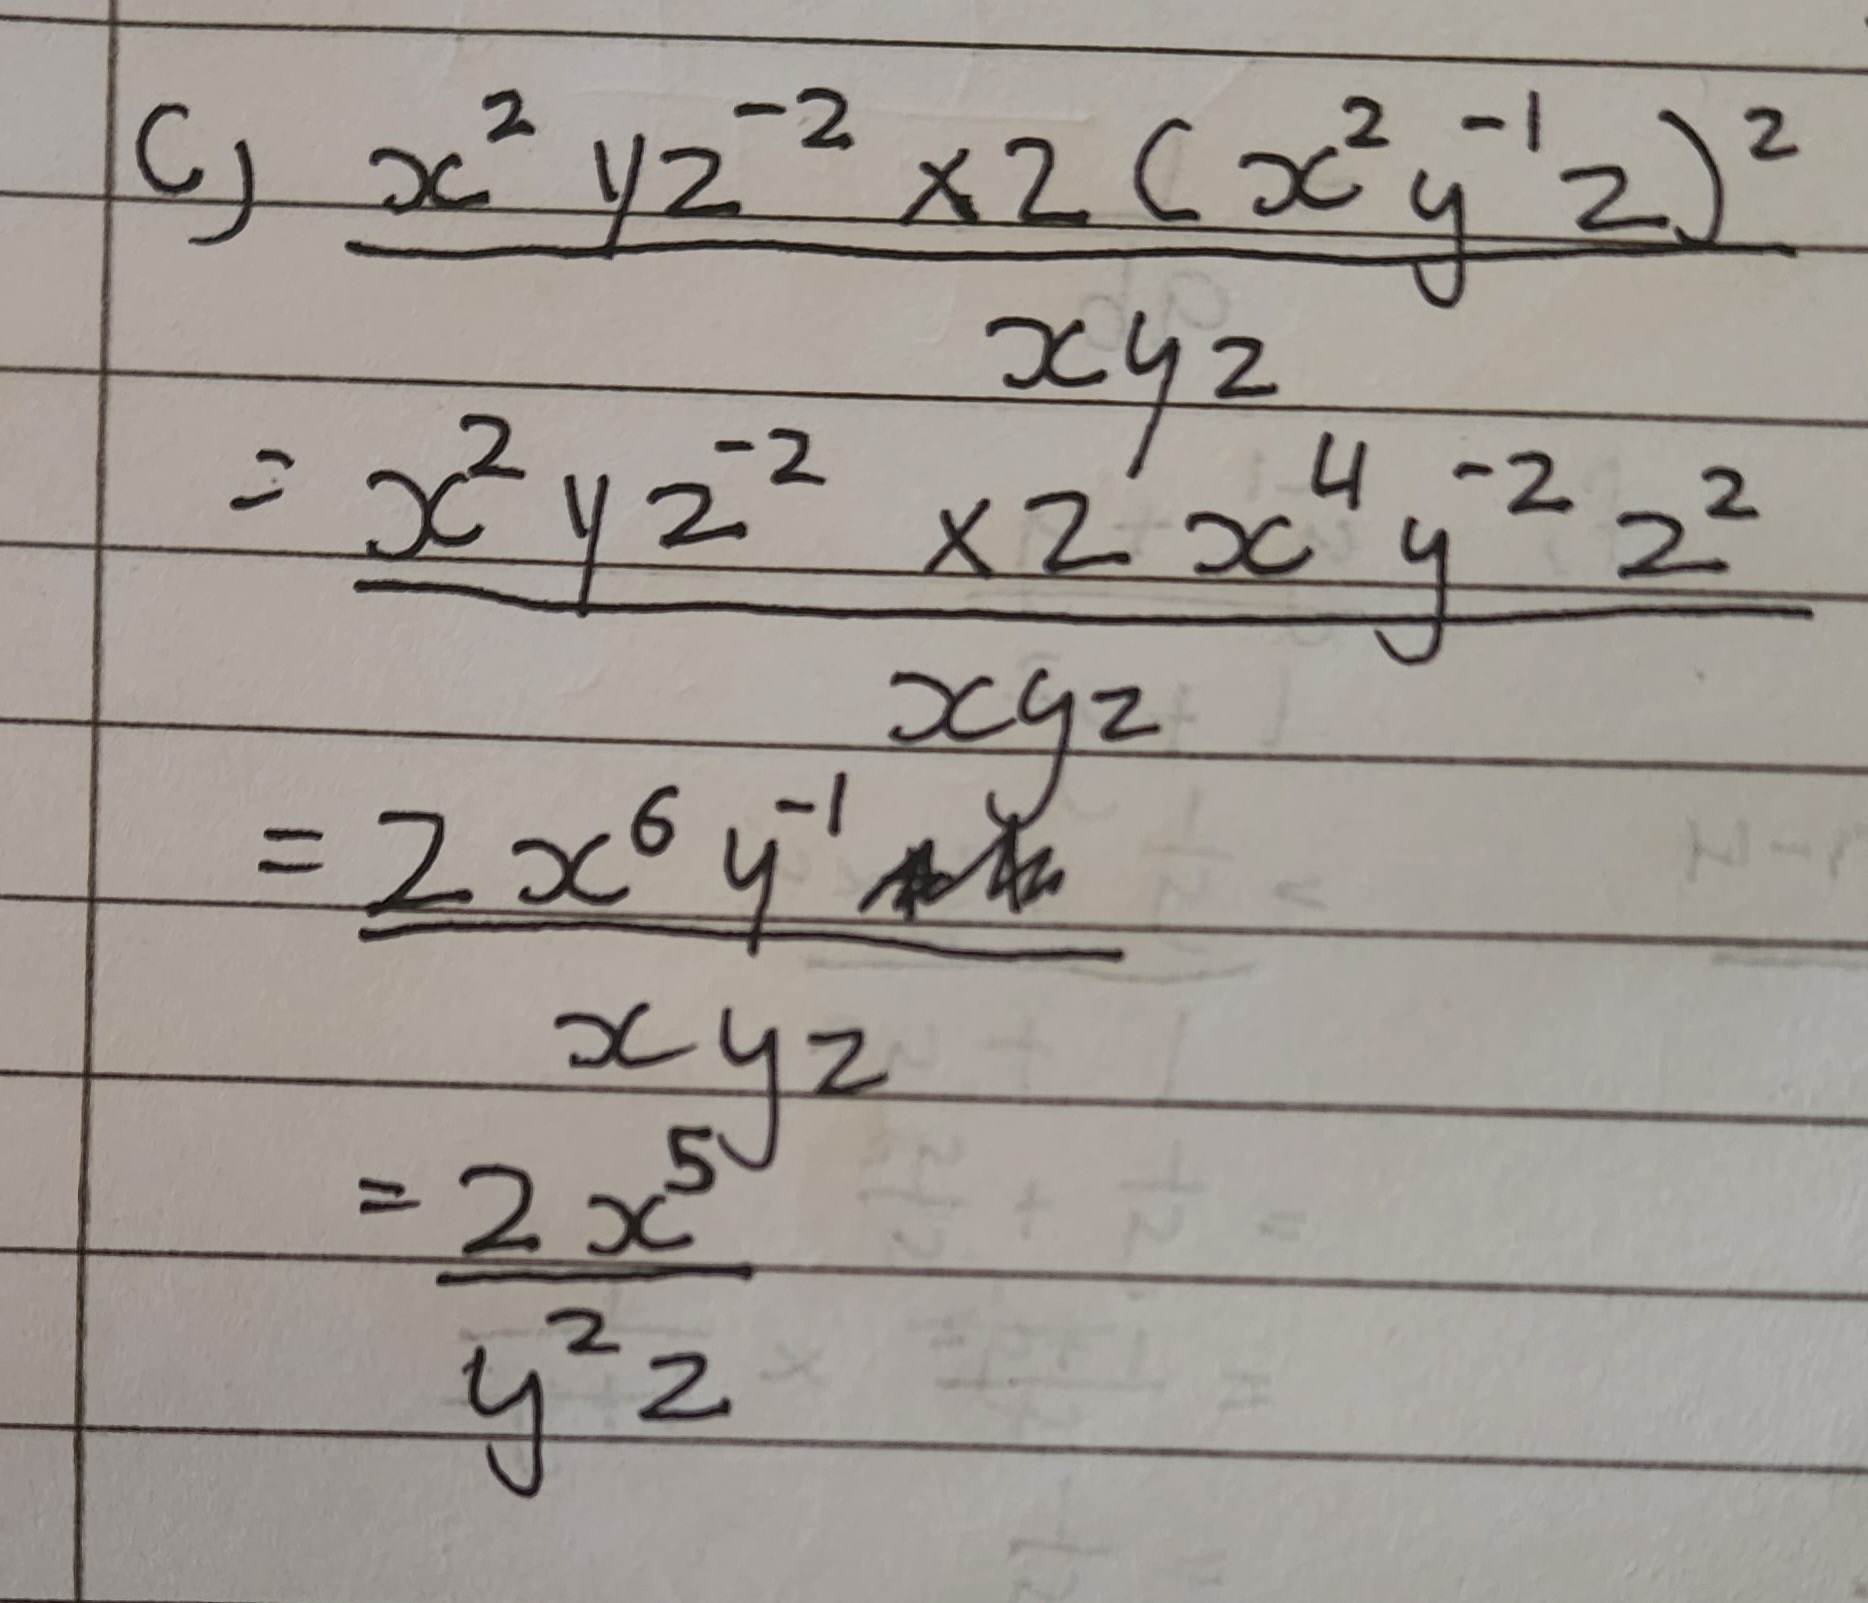 c) x² y z⁻² × 2 (x² y⁻¹ z)²
x y z
= x² y z⁻² × 2 x⁴ y⁻² z²
x y z
= 2 x⁶ y⁻¹
x y z
= 2 x⁵
y² z